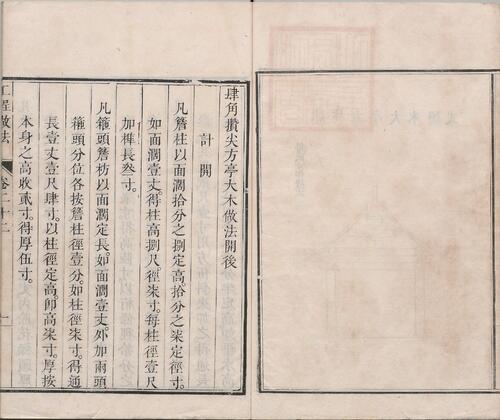 肆角攢尖方亭大木做法開後
計開
凡簷柱以面濶拾分之捌定高拾分之柒定徑寸
如面濶壹丈得柱高捌尺徑柒寸每柱徑壹尺
加榫長叁寸
凡箍頭簷枋以面濶定長如面濶壹丈外加兩頭
箍頭分位各按簷柱徑壹分如柱徑柒寸得通
長壹丈壹尺肆寸以柱徑定高即高柒寸厚按
本身之高收貳寸得厚伍寸
工程做法
卷二十二
一